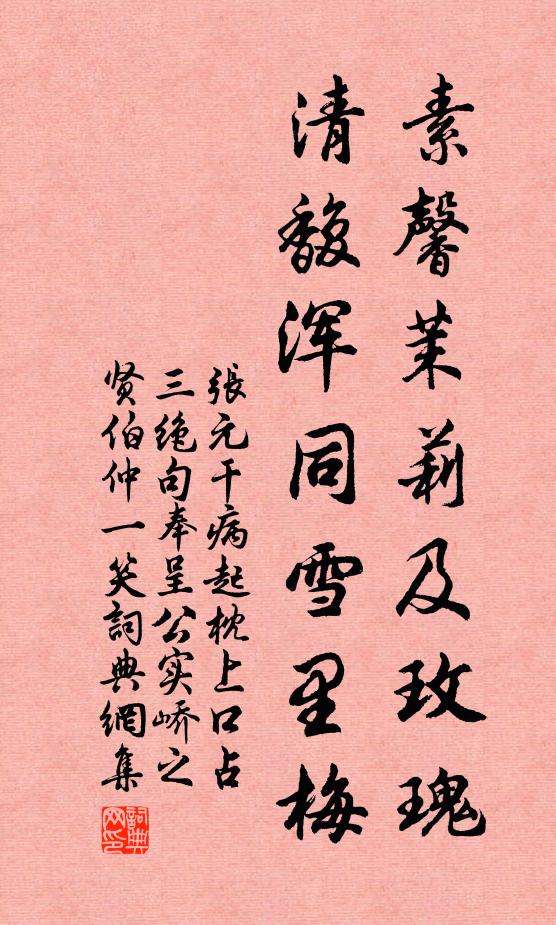 素馨茉莉及玫瑰
清馥浑同雪里梅
張元干病起枕上口占
三绝句奉呈公实峤之
贤伯仲一笑詞典網集
詞典网印